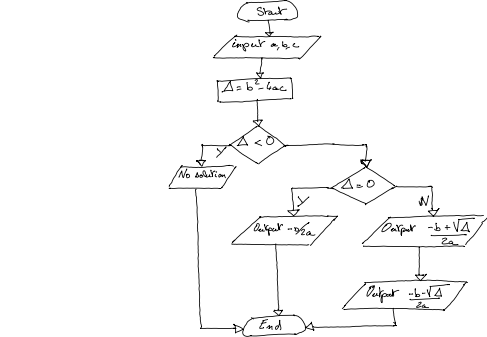 Start
input a, b, c
Δ = b² - 4ac
Δ < 0
Y
No solution
Δ = 0
Y
N
Output -b/2a
Output -b + √Δ / 2a
Output -b - √Δ / 2a
End